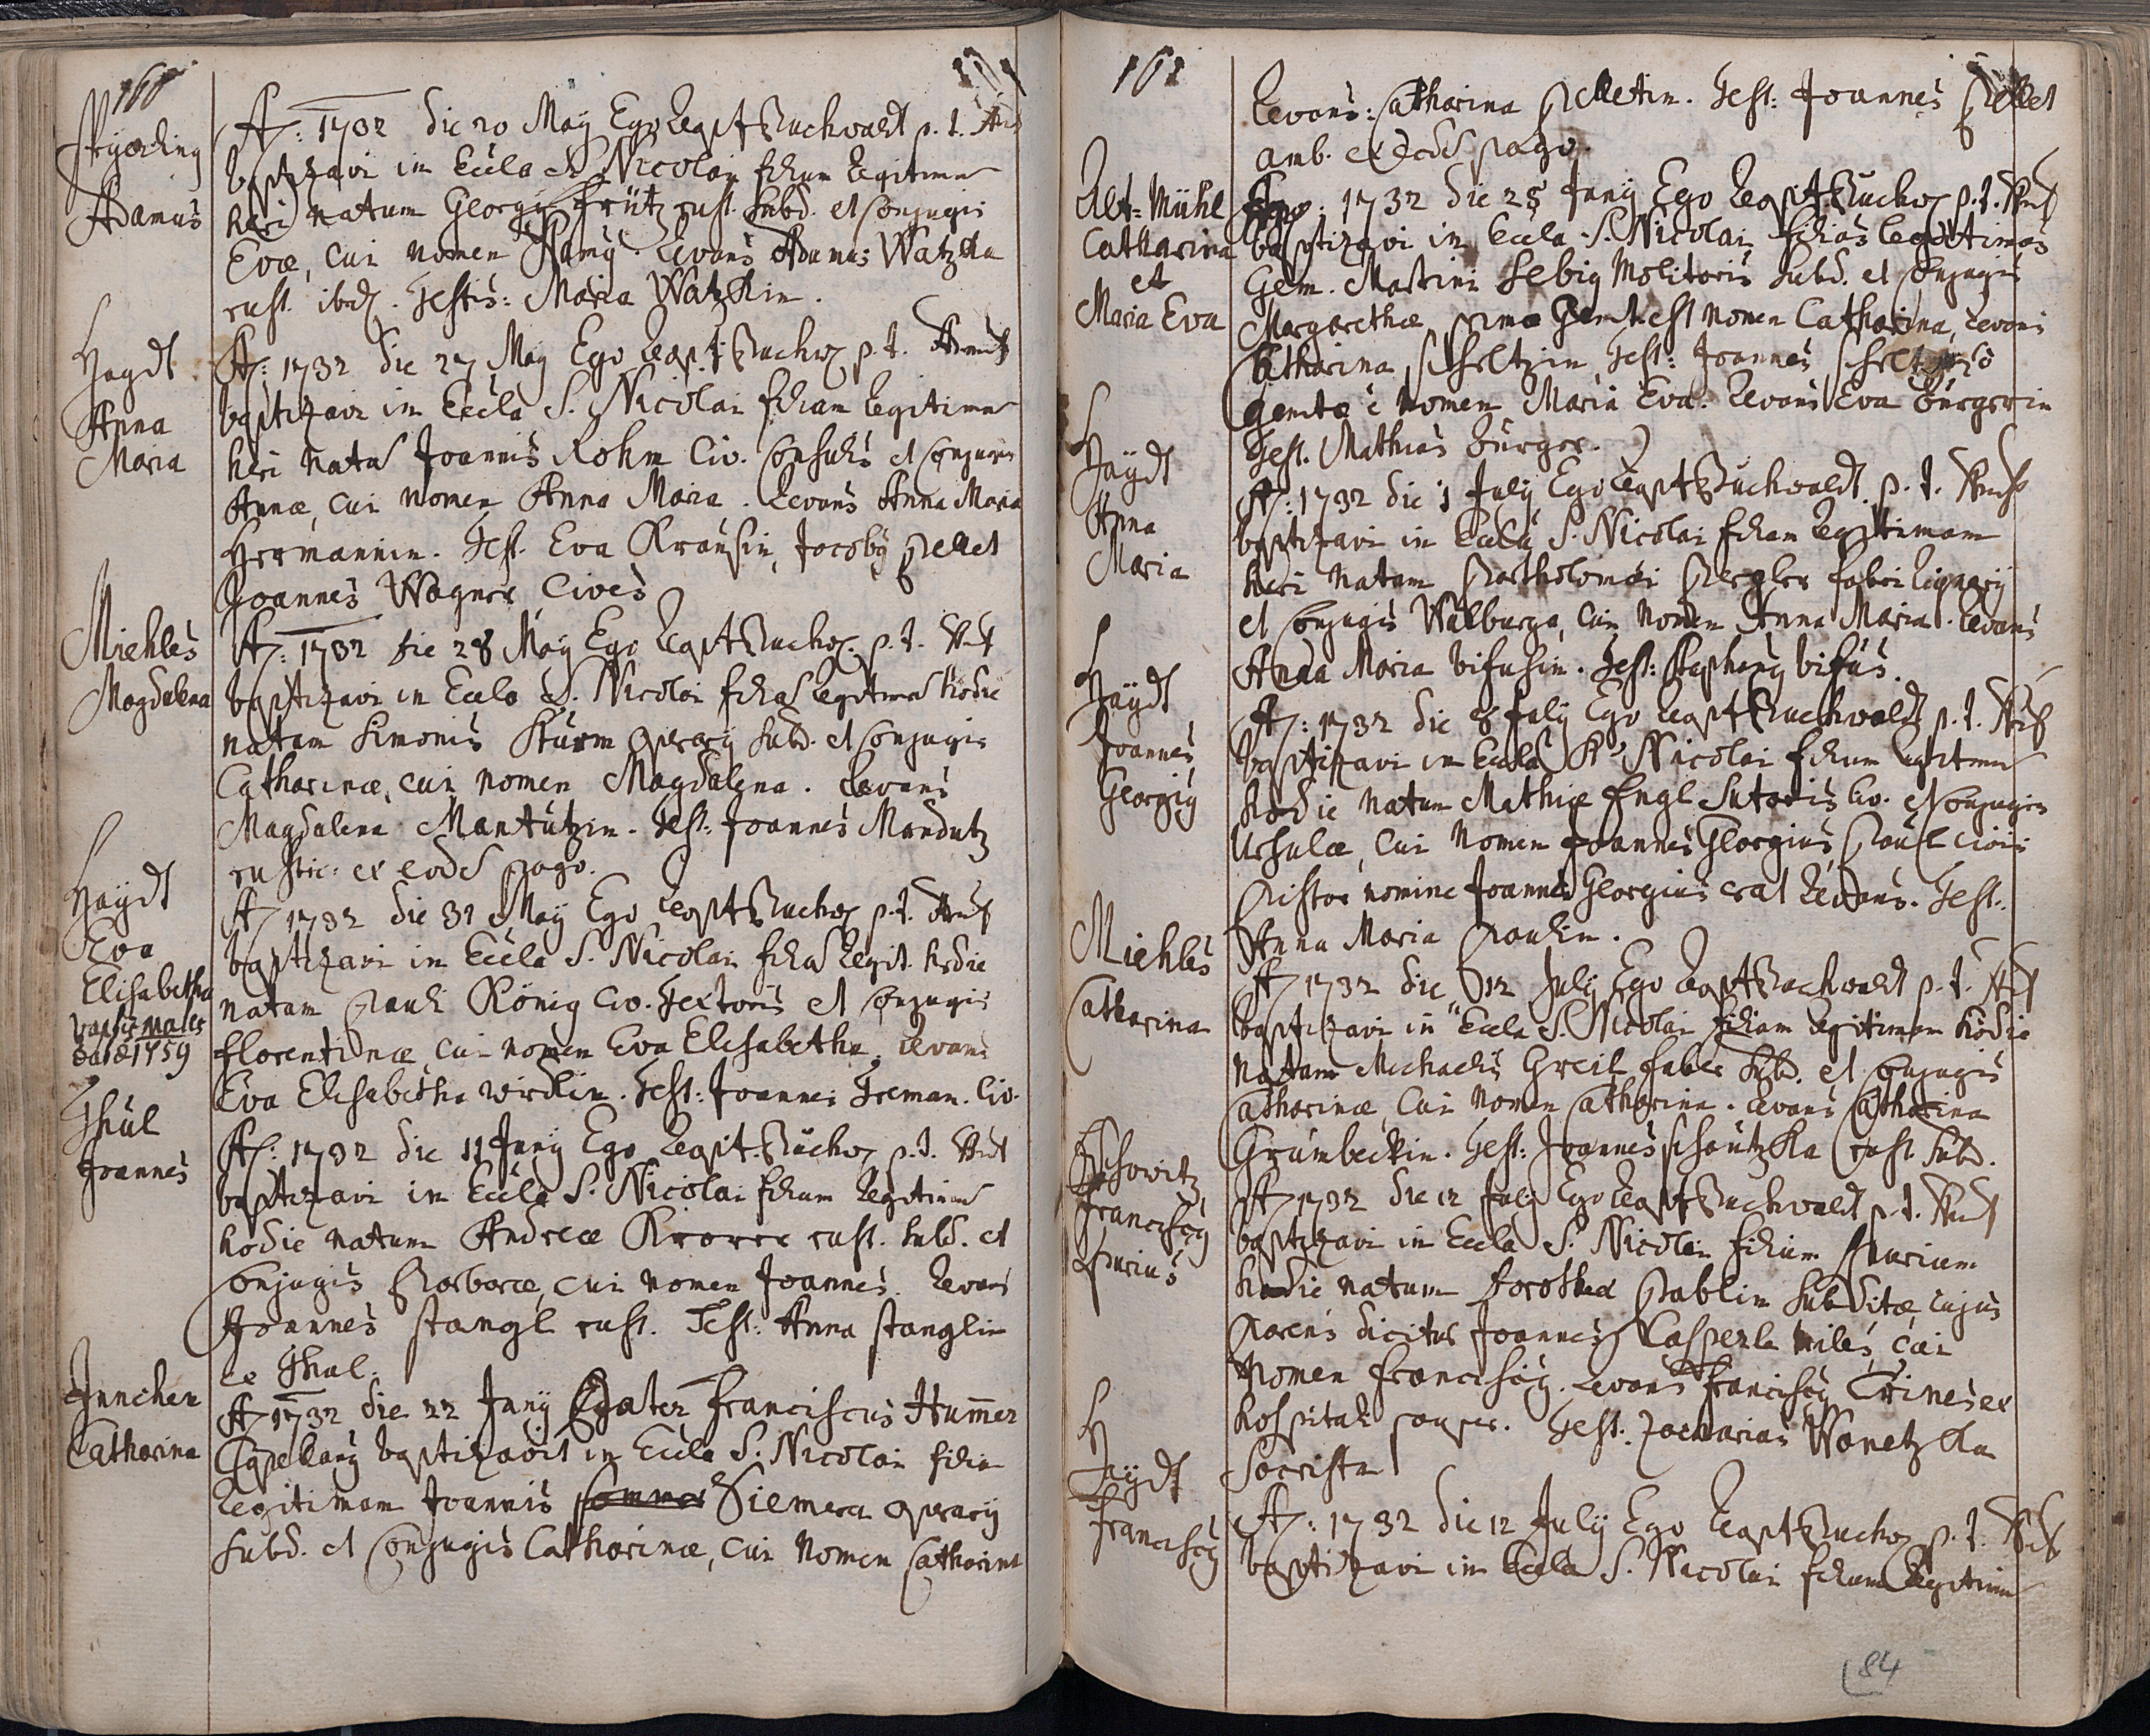 160
Skyarling
Adamus
A: 1732 die 20 May Ego Leopt Buchwaldt p. t. Arch
baptizavi in Eccla S. Nicolai filium legitimu
heri natum Georgy Frütz rust. subd. et Conjugis
Evæ, cui nomen Adamy. Levans Adamus Watzka
rust. ibid. Testis: Maria Watzkin.
Haydt
Anna
Maria
A: 1732 die 27 May Ego Leop:t Buchw p. t. Arch
baptizavi in Eccla S. Nicolai filiam legitima
heri nata Joannis Rohm Civ. Consulis et Conjugis
Annæ, cui nomen Anna Maria. Levans Anna Maria
Hermannin. Test. Eva Krausin, Jacoby Pellet
Joannes Wagner Cives
Miehles
Magdalena
A: 1732 die 28 May Ego Leopt Buchw. p. t. Arch
baptizavi in Eccla S. Nicolai filia legitima hodie
natam Simonis Sturm operary subd. et Conjugis
Catharinæ, cui nomen Magdalena. Levans
Magdalena Mantutzin. Test: Joannes Mandutz
rustic: ex eode pago.
Haydt
Eva
Elisabetha
1759
A: 1732 die 31 May Ego Leopt Buchw p. t. Arch
baptizavi in Eccla S. Nicolai filia legit. hodie
natam Pauli König Civ. Textoris et Conjugis
Florentinæ, cui nomen Eva Elisabetha. Levans
Eva Elisabetha Wirklin. Test: Joannes Treman. Civ.
Thül
Joannes
A: 1732 die 11 Juny Ego Leopt. Buchw p. t. Arch
baptizavi in Eccla S. Nicolai filium legitimu
hodie natum Andreæ Krorer rust. subd. et
Conjugis Barbaræ, cui nomen Joannes. Levans
Joannes Stangl rust. Test: Anna Stanglin
ex Thul.
Juncher
Catharina
A: 1732 die 22 Juny Pater Franciscus Hummer
Capellany baptizavit in Eccla S. Nicolai filia
legitimam Joannis Siemera operary
subd. et Conjugis Catharinæ, cui nomen Catharina
161
Levans: Catharina Pelletin. Test: Joannes Pellet
amb. ex eode pago.
Alt=Mühl
Catharina
et
Maria Eva
Ao: 1732 die 25 Juny Ego Leopt. Buchw p. t. Arch
baptizavi in Eccla S. Nicolai filias legitimas
Gem. Martini Sebig Molitoris subd. et Conjugis
Margarethæ, primæ Genit. est nomen Catharina, Levans
Catharina Scheltzin, Test: Joannes
genitæ è nomen Maria Eva. Levans Eva Bürgerin
Test. Mathias Bürger.
Haydt
Anna
Maria
A: 1732 die 1 July Ego Leopt Buchwaldt p. t. Arch
baptizavi in Eccla S. Nicolai filiam legitimam
heri natam Bartholomæi Pergler fabri lignarÿ
et Conjugis Walburga, cui nomen Anna Maria. Levans
Anna Maria Bifusin. Test: Stephany Bifus.
Haydt
Joannes
Georgiy
A: 1732 die 8 July Ego Leopt Buchwaldt p. t. Arch
baptizavi in Eccla S. Nicolai filium legitimu
hodie natum Mathiæ Engl Sutoris Civ. et Conjugis
Ursulæ, cui nomen Joannes Georgius, Paul Civis
Pistor nomine Joannes Georgius erat Levans. Test.
Anna Maria Paulin.
Miehles
Catharina
A 1732 die 12 July Ego Leopt Buchwaldt p. t. Arch
baptizavi in Eccla S. Nicolai filiam legitimam hodie
natam Michaelis Greil faber subd. et Conjugis
Catharinæ, cui nomen Catharina. Levans Catharina
Grumbeckin. Test: Joannes Schautzka rust. subd.
Franciscy
Spurius
A 1732 die 12 July Ego Leopt Buchwaldt p. t. Arch
baptizavi in Eccla S. Nicolai filium spurium
hodie natum Dorothea Pablin subditæ cujus
Parens dicitur Joannes Casperle miles, cui
nomen Franciscy. Levans Franciscy Trineser
hospitali pauper. Test: Zacharias Wanetzka
Sacrista
Haydt
Franciscy
A: 1732 die 12 July Ego Leopt Buchw p. t. Arch
baptizavi in Eccla S. Nicolai filium legitimu
84